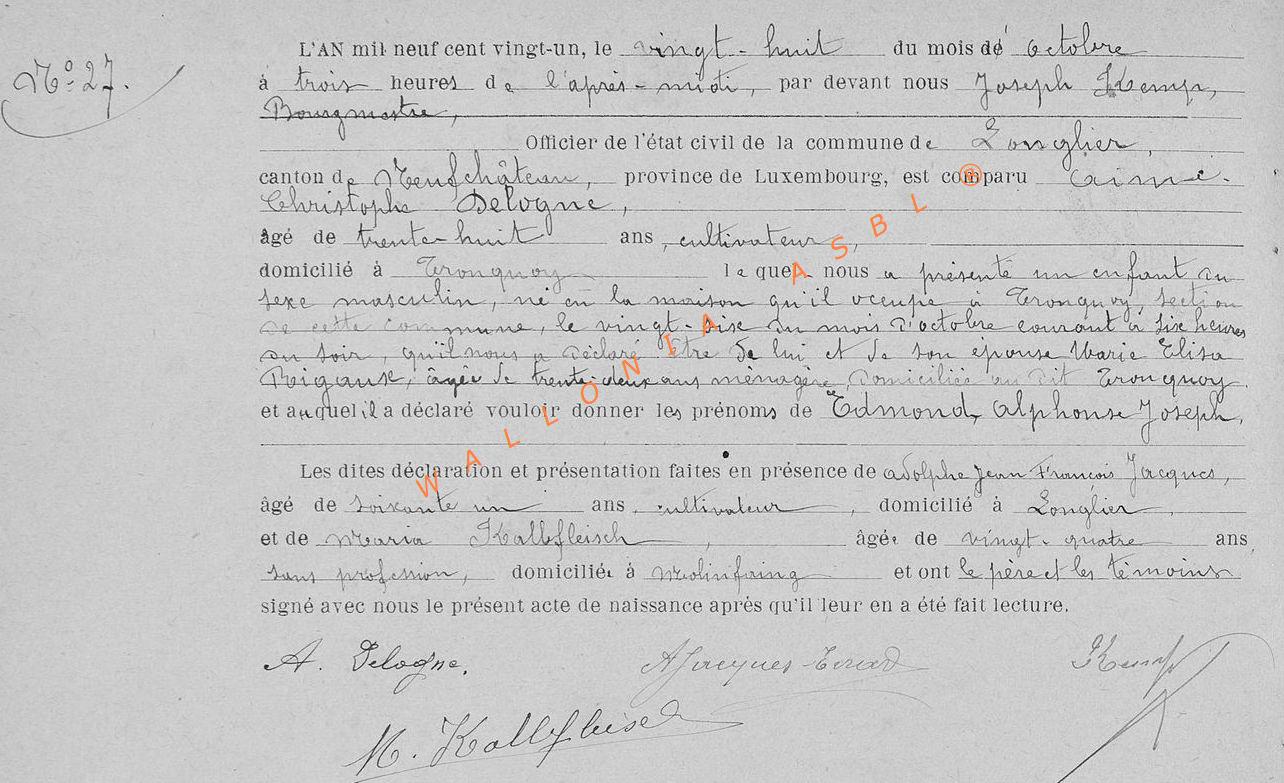 N° 27.
L'AN mil neuf cent vingt-un, le vingt-huit du mois de octobre
à trois heures de l'après-midi, par devant nous Joseph Kemp,
Bourgmestre,
Officier de l'état civil de la commune de Longlier,
canton de Neufchâteau, province de Luxembourg, est comparu Aimé
Christophe Delogne,
âgé de trente-huit ans, cultivateur,
domicilié à Tronquoy lequel nous a présenté un enfant du
sexe masculin, né en la maison qu'il occupe à Tronquoy, section
de cette commune, le vingt-six du mois d'octobre courant à six heures
du soir, qu'il nous a déclaré être de lui et de son épouse Marie Elisa
Rigaux, âgée de trente-deux ans ménagère, domiciliée au dit Tronquoy.
et auquel il a déclaré vouloir donner les prénoms de Edmond, Alphonse Joseph.
Les dites déclaration et présentation faites en présence de Adolphe Jean François Jacques,
âgé de soixante un ans, cultivateur, domicilié à Longlier,
et de Maria Kalbfleisch, âgée de vingt-quatre ans
sans profession, domiciliée à Molinfaing et ont le père et les témoins
signé avec nous le présent acte de naissance après qu'il leur en a été fait lecture.
A. Delogne. AJacques Kemp
M. Kalbfleisch
WALLONIA ASBL ®